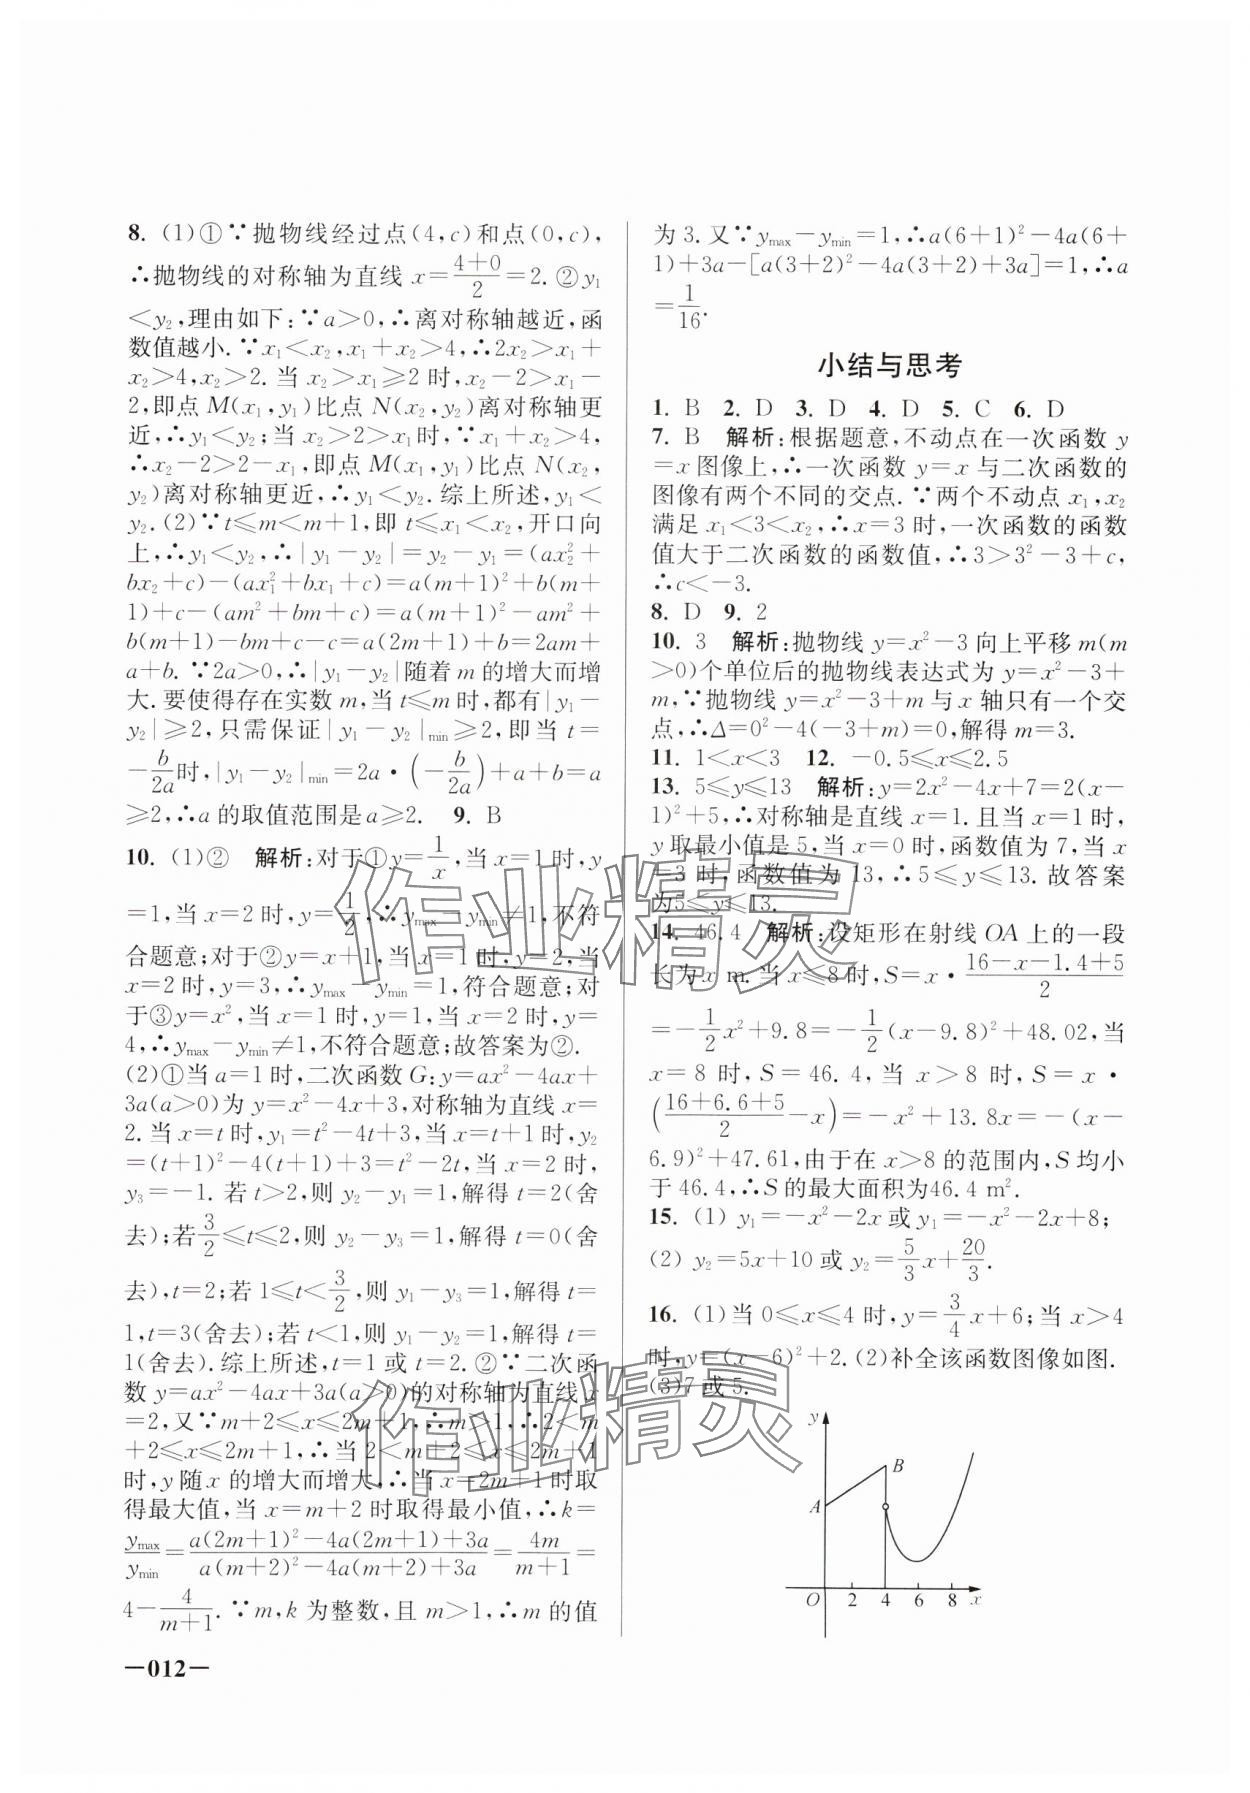 8. (1)①∵抛物线经过点(4,c)和点(0,c),
∴抛物线的对称轴为直线 x=\frac{4+0}{2}=2. ②y₁
<y₂,理由如下:∵a>0,∴离对称轴越近,函
数值越小. ∵x₁<x₂,x₁+x₂>4,∴2x₂>x₁+
x₂>4,x₂>2. 当 x₂>x₁≥2 时,x₂-2>x₁-
2,即点 M(x₁,y₁)比点 N(x₂,y₂)离对称轴更
近,∴y₁<y₂;当 x₂>2>x₁时,∵x₁+x₂>4,
∴x₂-2>2-x₁,即点 M(x₁,y₁)比点 N(x₂,
y₂)离对称轴更近,∴y₁<y₂. 综上所述,y₁<
y₂. (2)∵t≤m<m+1,即 t≤x₁<x₂,开口向
上,∴y₁<y₂,∴|y₁-y₂|=y₂-y₁=(ax₂²+
bx₂+c)-(ax₁²+bx₁+c)=a(m+1)²+b(m+
1)+c-(am²+bm+c)=a(m+1)²-am²+
b(m+1)-bm+c-c=a(2m+1)+b=2am+
a+b. ∵2a>0,∴|y₁-y₂|随着 m 的增大而增
大. 要使得存在实数 m,当 t≤m 时,都有|y₁-
y₂|≥2,只需保证|y₁-y₂|min≥2,即当 t=
-\frac{b}{2a}时,|y₁-y₂|min=2a·(-\frac{b}{2a})+a+b=a
≥2,∴a 的取值范围是 a≥2. 9. B
10. (1)② 解析:对于①y=\frac{1}{x},当 x=1 时,y
=1,当 x=2 时,y=\frac{1}{2},∴ymax-ymin≠1,不符
合题意;对于②y=x+1,当 x=1 时,y=2,当
x=2 时,y=3,∴ymax-ymin=1,符合题意;对
于③y=x²,当 x=1 时,y=1,当 x=2 时,y=
4,∴ymax-ymin≠1,不符合题意;故答案为②.
(2)①当 a=1 时,二次函数 G:y=ax²-4ax+
3a(a>0)为 y=x²-4x+3,对称轴为直线 x=
2. 当 x=t 时,y₁=t²-4t+3,当 x=t+1 时,y₂
=(t+1)²-4(t+1)+3=t²-2t,当 x=2 时,
y₃=-1. 若 t>2,则 y₂-y₁=1,解得 t=2(舍
去);若\frac{3}{2}≤t≤2,则 y₂-y₃=1,解得 t=0(舍
去),t=2;若 1≤t<\frac{3}{2},则 y₁-y₃=1,解得 t=
1,t=3(舍去);若 t<1,则 y₁-y₂=1,解得 t=
1(舍去). 综上所述,t=1 或 t=2. ②∵二次函
数 y=ax²-4ax+3a(a>0)的对称轴为直线 x
=2,又∵m+2≤x≤2m+1,∴m>1,∴2<m
+2≤x≤2m+1,∴当 2<m+2≤x≤2m+1
时,y 随 x 的增大而增大,∴当 x=2m+1 时取
得最大值,当 x=m+2 时取得最小值,∴k=
\frac{ymax}{ymin}=\frac{a(2m+1)²-4a(2m+1)+3a}{a(m+2)²-4a(m+2)+3a}=\frac{4m}{m+1}=
4-\frac{4}{m+1}. ∵m,k 为整数,且 m>1,∴m 的值
—012—
为 3. 又∵ymax-ymin=1,∴a(6+1)²-4a(6+
1)+3a-[a(3+2)²-4a(3+2)+3a]=1,∴a
=\frac{1}{16}.
小结与思考
1. B 2. D 3. D 4. D 5. C 6. D
7. B 解析:根据题意,不动点在一次函数 y
=x 图像上,∴一次函数 y=x 与二次函数的
图像有两个不同的交点. ∵两个不动点 x₁,x₂
满足 x₁<3<x₂,∴x=3 时,一次函数的函数
值大于二次函数的函数值,∴3>3²-3+c,
∴c<-3.
8. D 9. 2
10. 3 解析:抛物线 y=x²-3 向上平移 m(m
>0)个单位后的抛物线表达式为 y=x²-3+
m,∵抛物线 y=x²-3+m 与 x 轴只有一个交
点,∴Δ=0²-4(-3+m)=0,解得 m=3.
11. 1<x<3 12. -0.5≤x≤2.5
13. 5≤y≤13 解析:y=2x²-4x+7=2(x-
1)²+5,∴对称轴是直线 x=1. 且当 x=1 时,
y 取最小值是 5,当 x=0 时,函数值为 7,当 x
=3 时,函数值为 13,∴5≤y≤13. 故答案
为5≤y≤13.
14. 46.4 解析:设矩形在射线 OA 上的一段
长为 x m. 当 x≤8 时,S=x·\frac{16-x-1.4+5}{2}
=-\frac{1}{2}x²+9.8=-\frac{1}{2}(x-9.8)²+48.02,当
x=8 时,S=46.4,当 x>8 时,S=x·
(\frac{16+6.6+5}{2}-x)=-x²+13.8x=-(x-
6.9)²+47.61,由于在 x>8 的范围内,S 均小
于 46.4,∴S 的最大面积为46.4 m².
15. (1) y₁=-x²-2x或y₁=-x²-2x+8;
(2) y₂=5x+10 或 y₂=\frac{5}{3}x+\frac{20}{3}.
16. (1)当 0≤x≤4 时,y=\frac{3}{4}x+6;当 x>4
时,y=(x-6)²+2. (2)补全该函数图像如图.
(3)7 或 5.
y
B
A
O 2 4 6 8 x
作业精灵
作业精灵